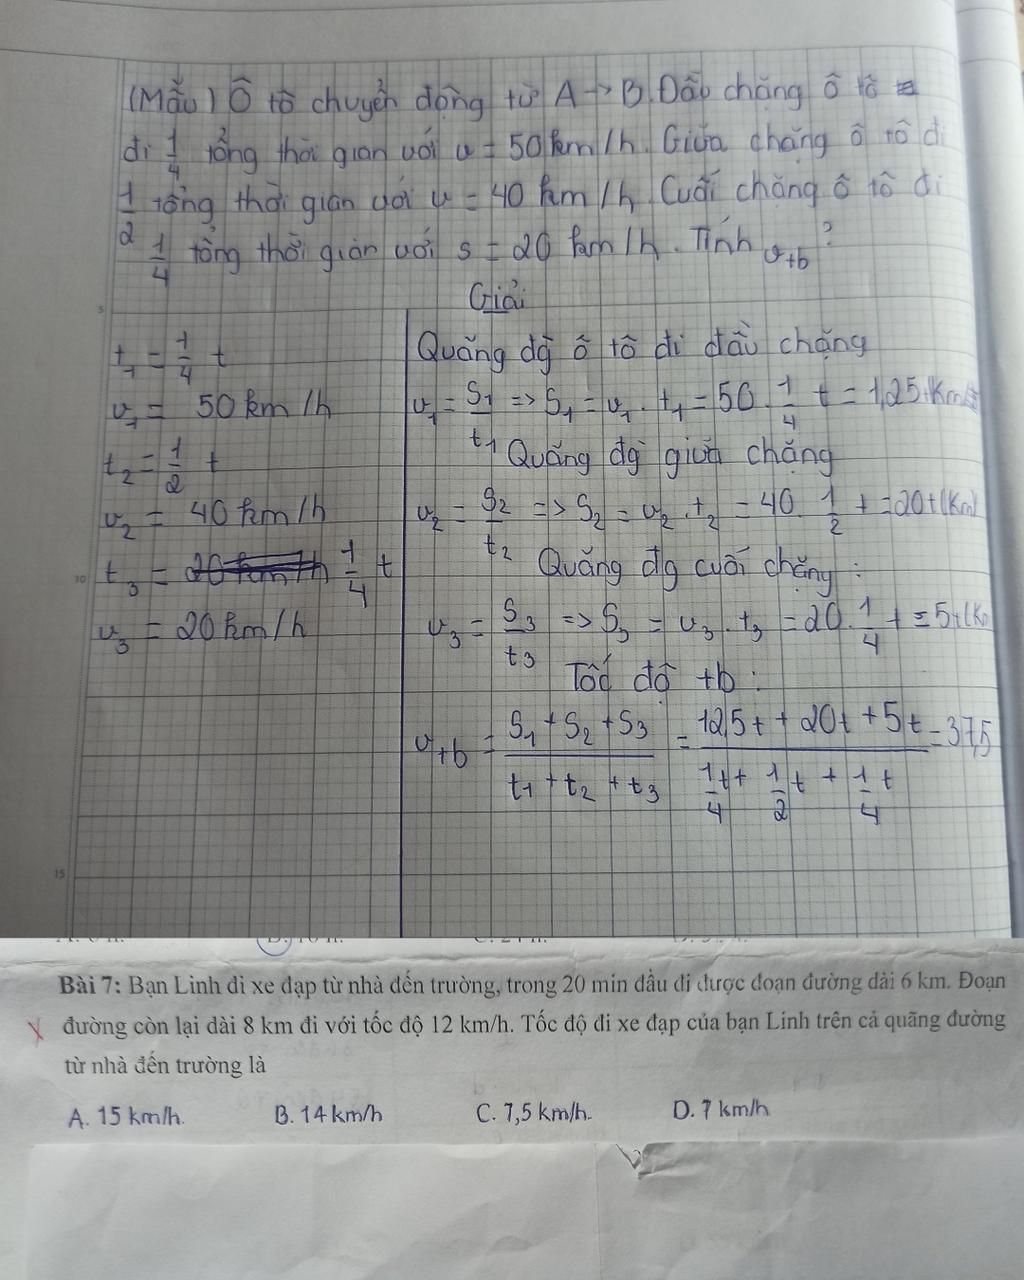 (Mẫu) Ô tô chuyển động từ A → B. Đầu chặng ô tô
đi 1/4 tổng thời gian với v = 50 km/h. Giữa chặng ô tô đi
1/2 tổng thời gian với v = 40 km/h. Cuối chặng ô tô đi
1/4 tổng thời gian với s = 20 km/h. Tính v+b?
Giải
5
t1 = 1/4 t
v1 = 50 km/h
t2 = 1/2 t
v2 = 40 km/h
10
t3 = 1/4 t
v3 = 20 km/h
Quãng đg ô tô đi đầu chặng
v1 = S1/t1 => S1 = v1 . t1 = 50 . 1/4 t = 1,25t(Km)
Quãng đg giữa chặng
v2 = S2/t2 => S2 = v2 . t2 = 40 . 1/2 t = 20t(Km)
Quãng đg cuối chặng :
v3 = S3/t3 => S3 = v3 . t3 = 20 . 1/4 t = 5t(Km)
Tốc độ tb :
vtb = (S1 + S2 + S3)/(t1 + t2 + t3) = (12,5t + 20t + 5t)/(1/4 t + 1/2 t + 1/4 t) = 37,5
15
Bài 7: Bạn Linh đi xe đạp từ nhà đến trường, trong 20 min đầu đi được đoạn đường dài 6 km. Đoạn
đường còn lại dài 8 km đi với tốc độ 12 km/h. Tốc độ đi xe đạp của bạn Linh trên cả quãng đường
từ nhà đến trường là
A. 15 km/h. B. 14 km/h C. 7,5 km/h. D. 7 km/h